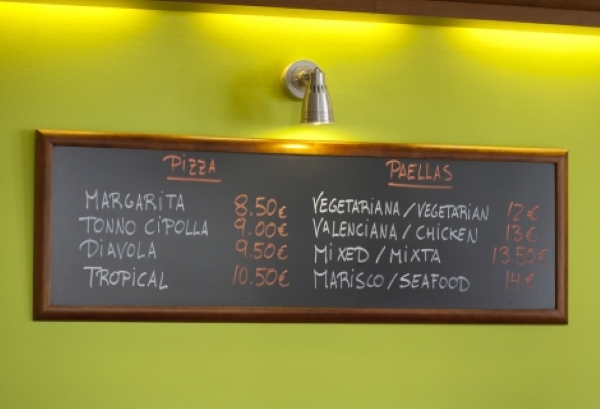 PIZZA
MARGARITA 8.50€
TONNO CIPOLLA 9.00€
DIAVOLA 9.50€
TROPICAL 10.50€
PAELLAS
VEGETARIANA/VEGETARIAN 12€
VALENCIANA/CHICKEN 13€
MIXED/MIXTA 13.50€
MARISCO/SEAFOOD 14€